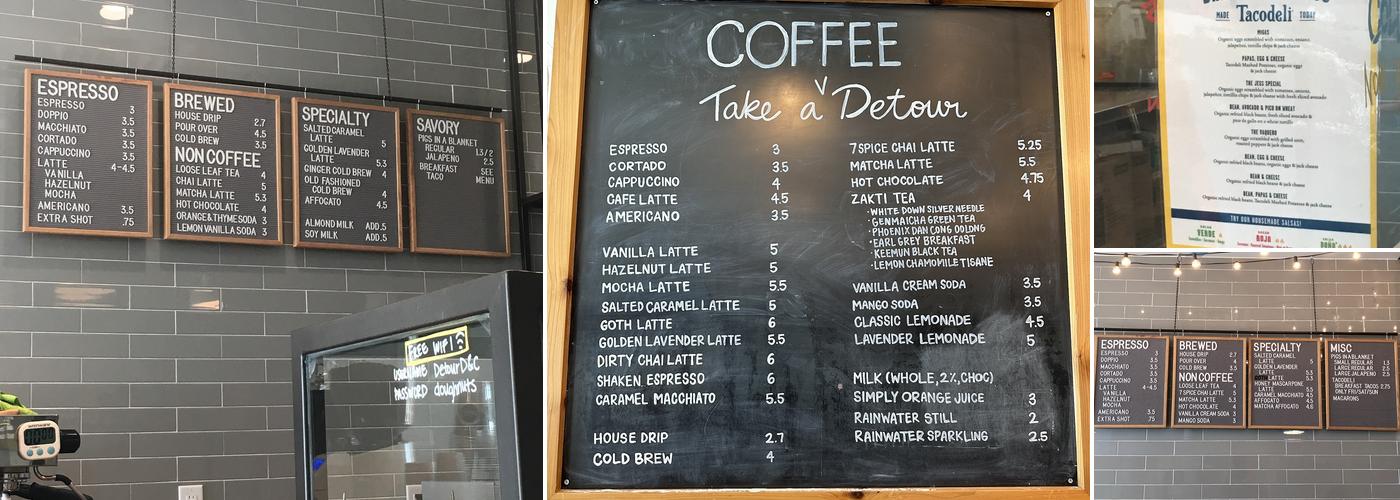 ESPRESSO
ESPRESSO 3
DOPPIO 3.5
MACCHIATO 3.5
CORTADO 3.5
CAPPUCCINO 3.5
LATTE 4-4.5
VANILLA
HAZELNUT
MOCHA
AMERICANO 3.5
EXTRA SHOT .75
BREWED
HOUSE DRIP 2.7
POUR OVER 4.5
COLD BREW 3.5
NON COFFEE
LOOSE LEAF TEA 4
CHAI LATTE 5
MATCHA LATTE 5.3
HOT CHOCOLATE 4
ORANGE & THYME SODA 3
LEMON VANILLA SODA 3
SPECIALTY
SALTED CARAMEL
LATTE 5
GOLDEN LAVENDER
LATTE 5.3
GINGER COLD BREW 4
OLD FASHIONED
COLD BREW 4
AFFOGATO 4.5
ALMOND MILK ADD .5
SOY MILK ADD .5
SAVORY
PIGS IN A BLANKET
REGULAR 1.3/2
JALAPENO 2.5
BREAKFAST SEE
TACO MENU
FREE WIFI!
USERNAME DetourD&C
PASSWORD doughnuts
COFFEE
Take a Detour
ESPRESSO 3
CORTADO 3.5
CAPPUCCINO 4
CAFE LATTE 4.5
AMERICANO 3.5
VANILLA LATTE 5
HAZELNUT LATTE 5
MOCHA LATTE 5.5
SALTED CARAMEL LATTE 5
GOTH LATTE 6
GOLDEN LAVENDER LATTE 5.5
DIRTY CHAI LATTE 6
SHAKEN ESPRESSO 6
CARAMEL MACCHIATO 5.5
HOUSE DRIP 2.7
COLD BREW 4
7 SPICE CHAI LATTE 5.25
MATCHA LATTE 5.5
HOT CHOCOLATE 4.75
ZAKTI TEA 4
· WHITE DOWN SILVER NEEDLE
· GENMAICHA GREEN TEA
· PHOENIX DAN CONG OOLONG
· EARL GREY BREAKFAST
· KEEMUN BLACK TEA
· LEMON CHAMOMILE TISANE
VANILLA CREAM SODA 3.5
MANGO SODA 3.5
CLASSIC LEMONADE 4.5
LAVENDER LEMONADE 5
MILK (WHOLE, 2%, CHOC)
SIMPLY ORANGE JUICE 3
RAINWATER STILL 2
RAINWATER SPARKLING 2.5
MADE Tacodeli TODAY
MIGAS
Organic eggs scrambled with tomatoes, onions,
jalapeños, tortilla chips & jack cheese
PAPAS, EGG & CHEESE
Tacodeli Mashed Potatoes, organic eggs
& jack cheese
THE JESS SPECIAL
BEAN, AVOCADO & PICO ON WHEAT
THE VAQUERO
Organic eggs scrambled with grilled corn,
roasted peppers & jack cheese
BEAN, EGG & CHEESE
Organic refried black beans, organic eggs & jack cheese
BEAN & CHEESE
Organic refried black beans & jack cheese
BEAN, PAPAS & CHEESE
Organic refried black beans, Tacodeli Mashed Potatoes & jack cheese
TRY OUR HOUSEMADE SALSAS!
SALSA VERDE
SALSA ROJA
SALSA DOÑA
ESPRESSO
ESPRESSO 3
DOPPIO 3.5
MACCHIATO 3.5
CORTADO 3.5
CAPPUCCINO 3.5
LATTE 4-4.5
VANILLA
HAZELNUT
MOCHA
AMERICANO 3.5
EXTRA SHOT .75
BREWED
HOUSE DRIP 2.7
POUR OVER 4
COLD BREW 3.5
NON COFFEE
LOOSE LEAF TEA 4
7 SPICE CHAI LATTE 5
MATCHA LATTE 5.3
HOT CHOCOLATE 4
VANILLA CREAM SODA 3
MANGO SODA 3
SPECIALTY
SALTED CARAMEL
LATTE 5
GOLDEN LAVENDER
LATTE 5.3
HONEY MASCARPONE
LATTE
CARAMEL MACCHIATO 4.5
AFFOGATO 4.5
MATCHA AFFOGATO 4.6
MISC
PIGS IN A BLANKET
SMALL REGULAR 1.3
LARGE REGULAR 2.5
LARGE JALAPENO 2.5
TACODELI
BREAKFAST TACOS 2.75
ONLY FRI/SAT/SUN
MACARONS